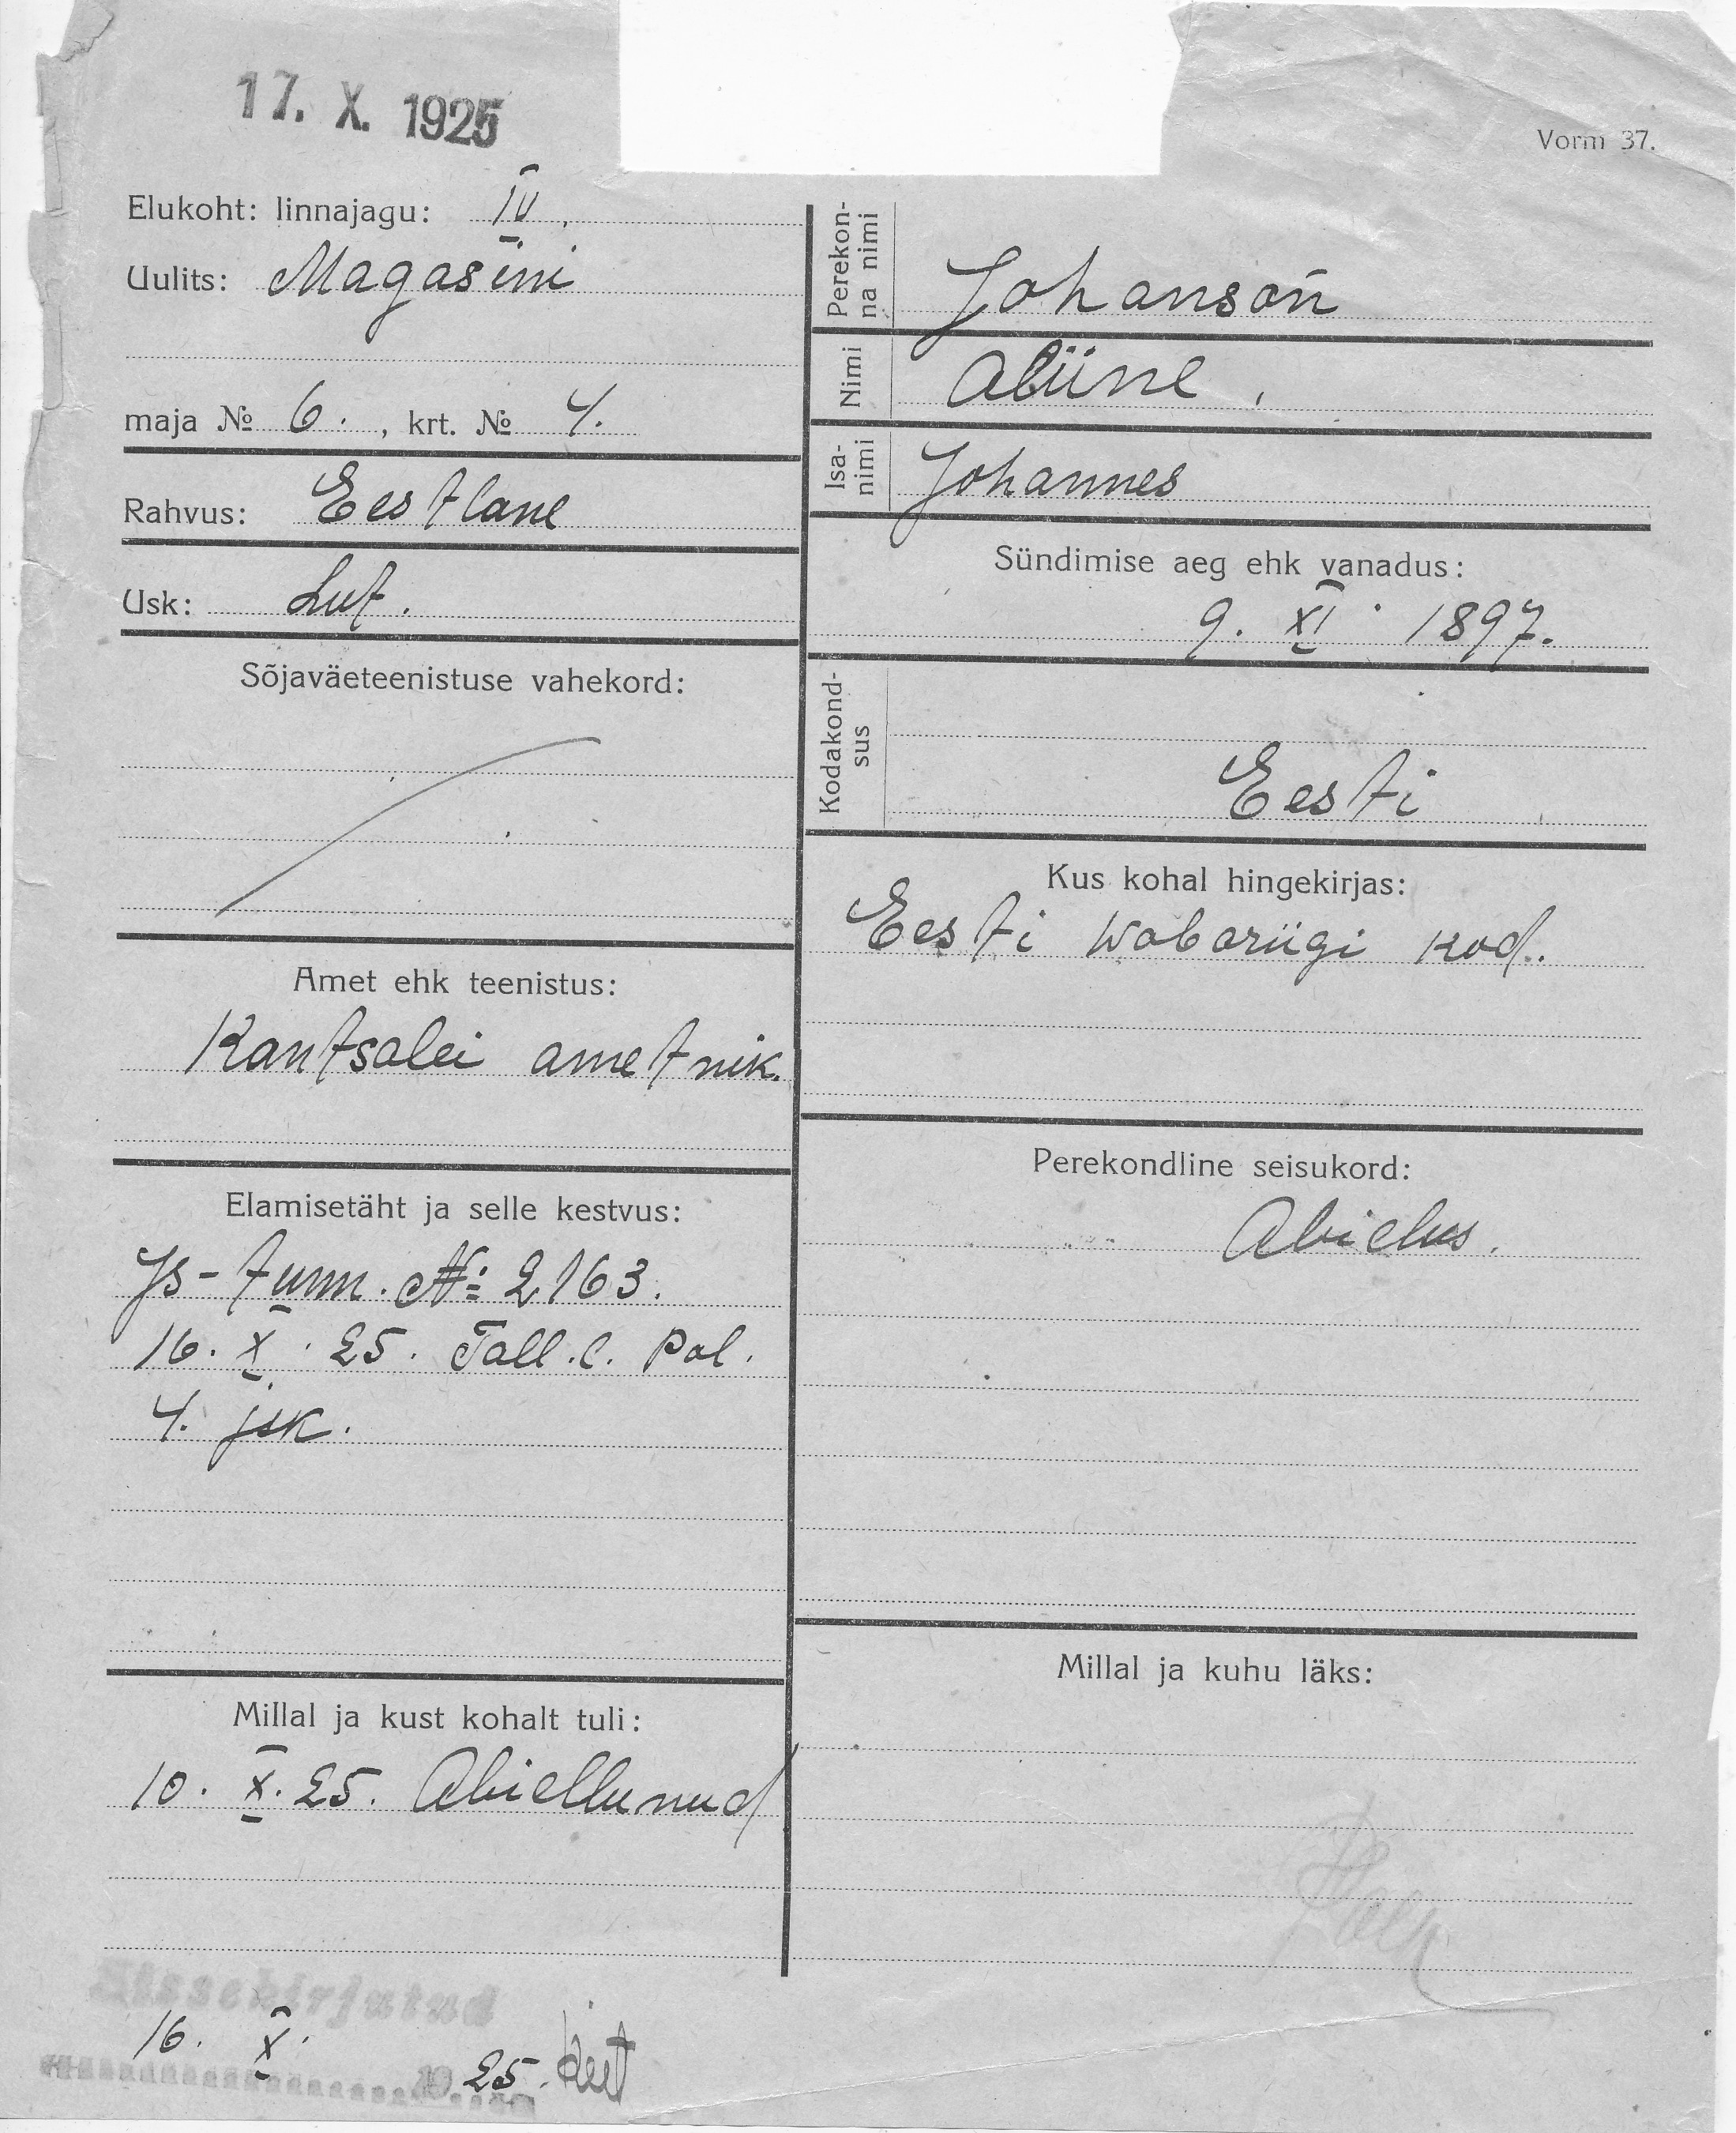 17. X. 1925
Vorm 37.
Elukoht: linnajagu: IV.
Uulits: Magasini
maja № 6. , krt. № 4.
Rahvus: Eestlane
Usk: Lut.
Sõjaväeteenistuse vahekord:
Amet ehk teenistus:
Kantsalei ametnik.
Elamisetäht ja selle kestvus:
Js-tunn. №: 2163.
16. X. 25. Tall. l. Pol.
4. jsk.
Millal ja kust kohalt tuli:
10. X. 25. Abiellunud
Sissekirjutud
16. X. 1925.
Perekon-
na nimi
Johanson
Nimi
Aliine.
Isa-
nimi
Johannes
Sündimise aeg ehk vanadus:
9. XI. 1897.
Kodakond-
sus
Eesti
Kus kohal hingekirjas:
Eesti Wabariigi kod.
Perekondline seisukord:
Abielus.
Millal ja kuhu läks: